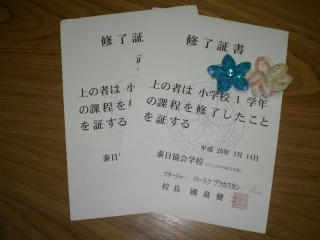 修了証
上の者は 小
の課程を修
を証する
泰日
修了証書
上の者は 小学校 1 学年
の課程を修了したこと
を証する
平成 20年 3月 14日
泰日協会学校
マネージャー
校長 國島 健